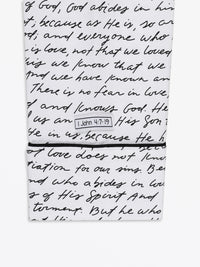 of God, God abides in him
t, because as He is, so ar
rd; and everyone who
is love, not that we loved
us we know that we
and we have known an
There is no fear in love
d and knows God. He
us an His Son
1 John 4:7-19
He in us, because He h
ot love does not know
tiation for our sins. Be
nd who abides in lov
s of His Spirit. And
torment. But he who